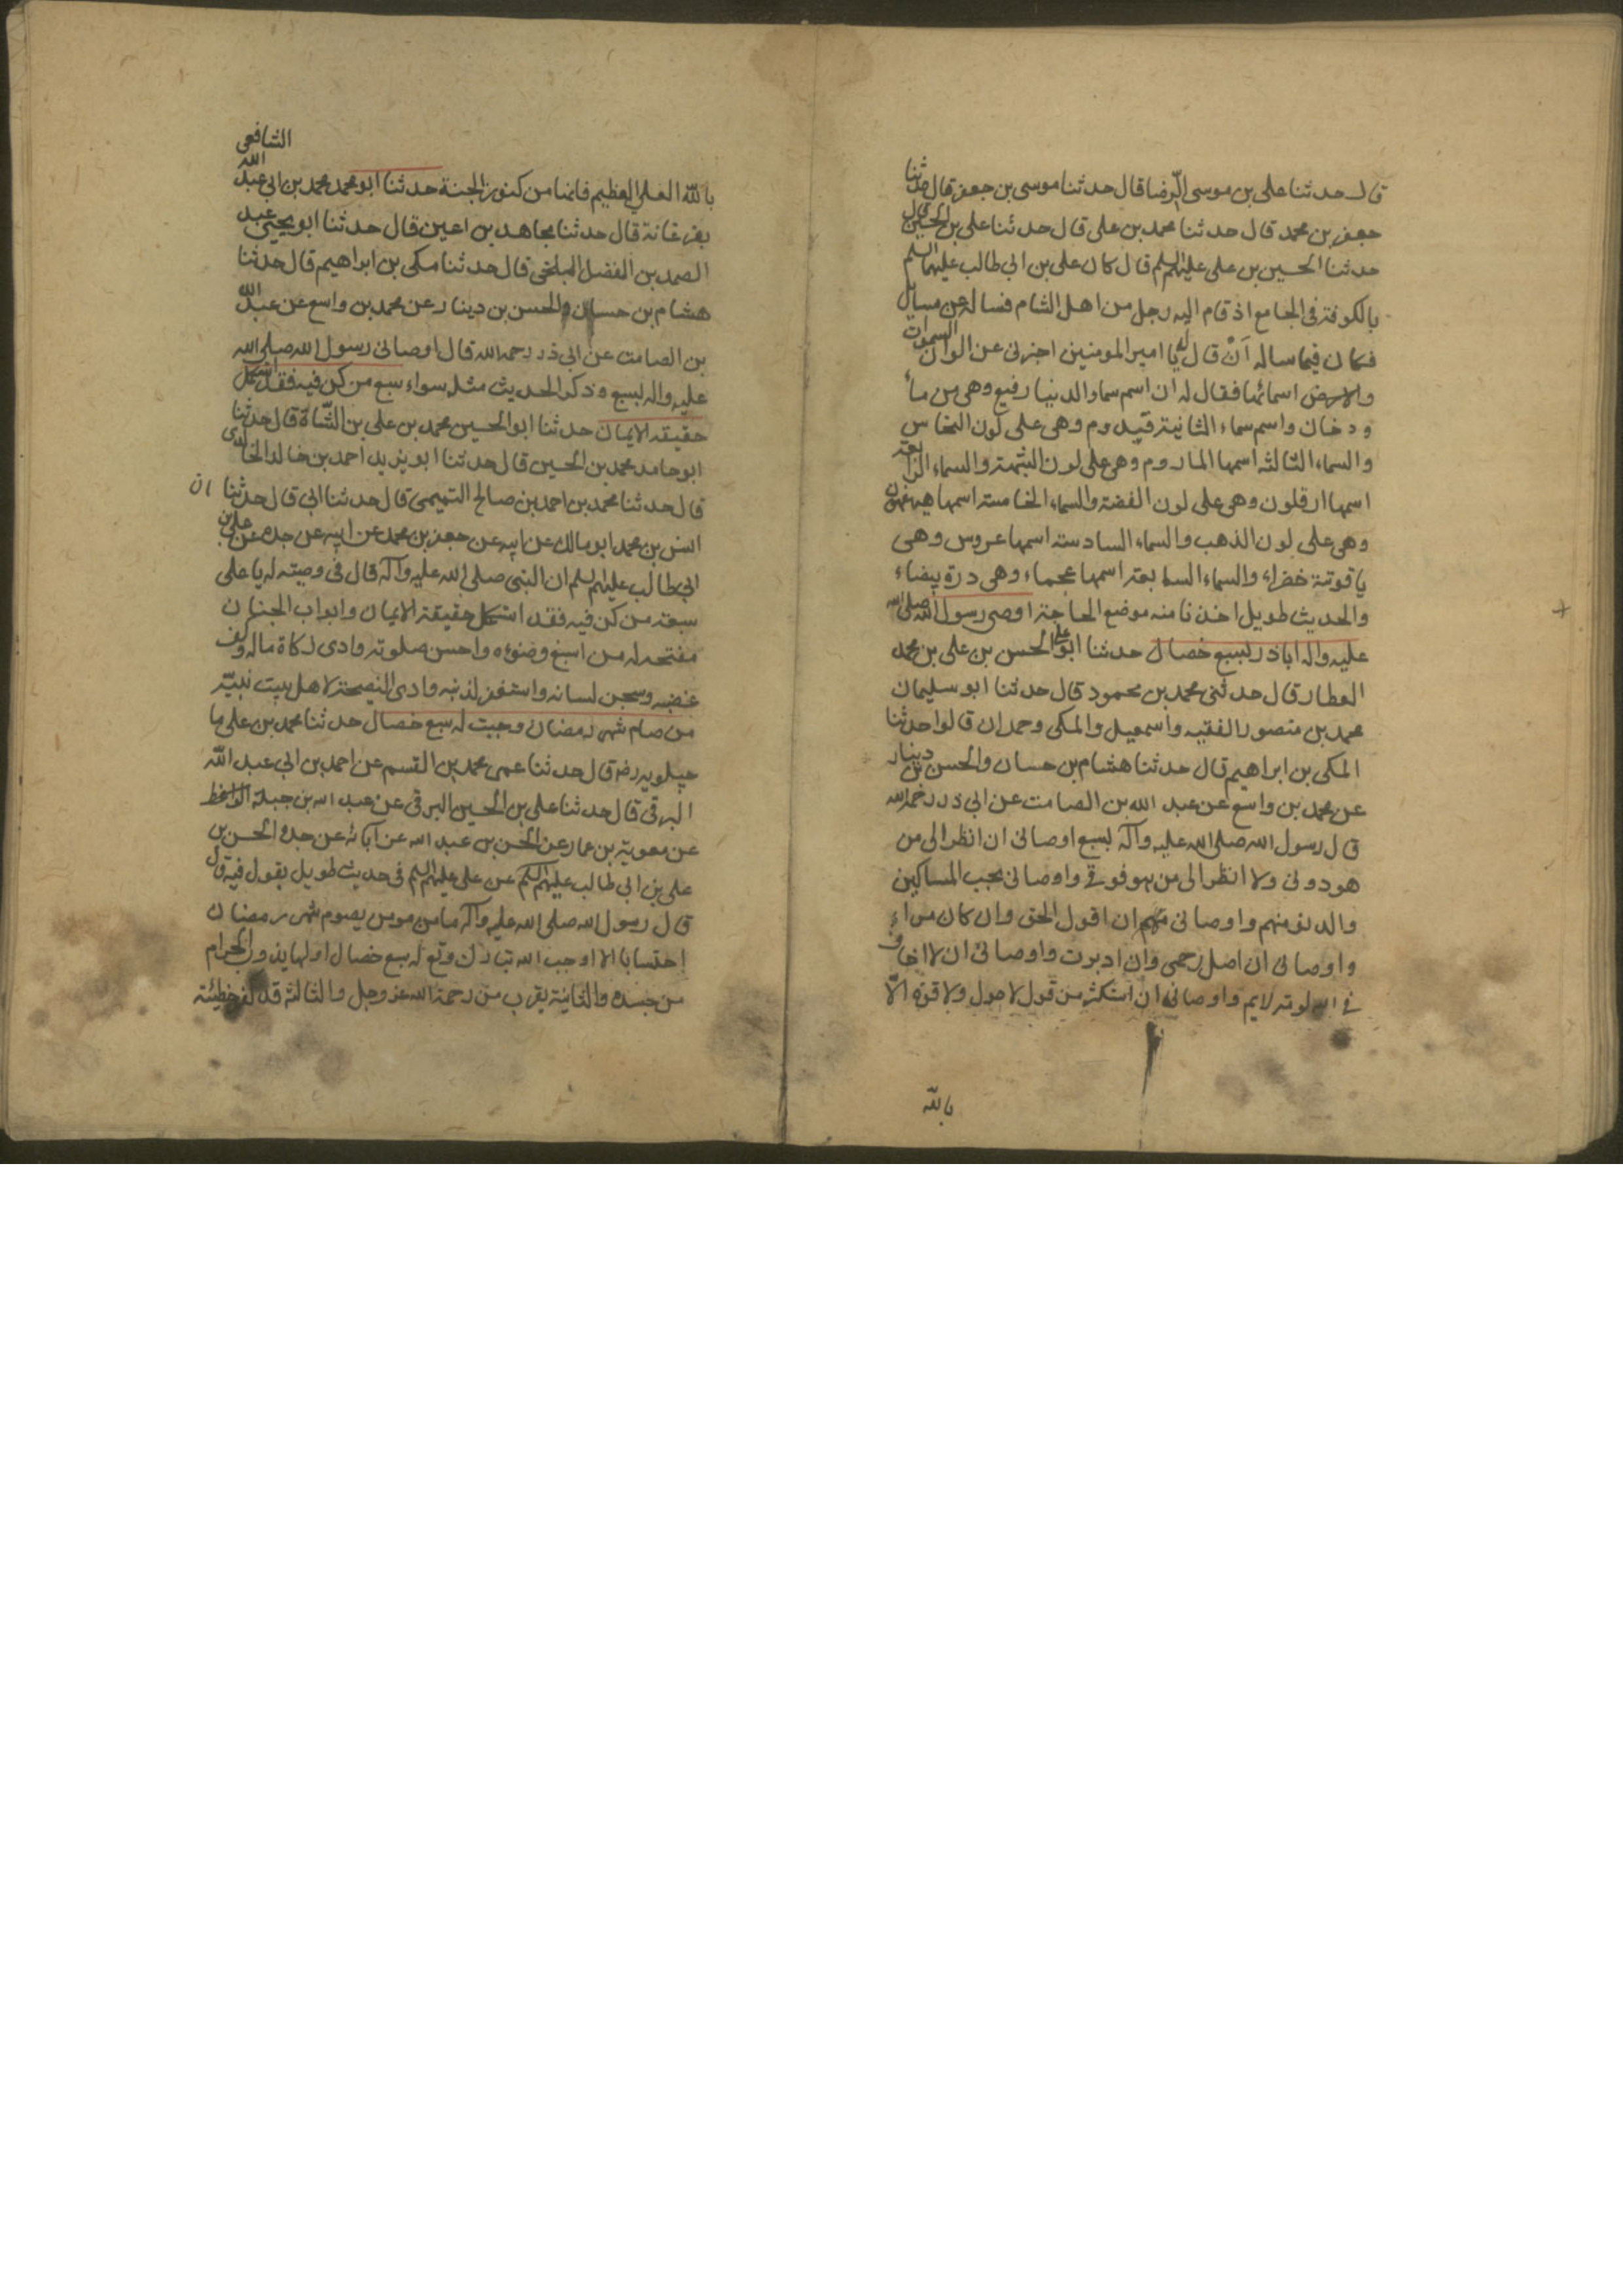 قال حدثنا على بن موسى الرّضا قال حدثنا موسى بن جعفر قال حدثنا
جعفر بن محمد قال حدثنا محمد بن على قال حدثنا على بن الحسين قال
حدثنا الحسين بن على عليهم السلم قال كان على بن ابى طالب عليهما السلم
بالكوفة فى الجامع اذ قام اليه رجل من اهل الشام فساله عن مسايل
فكان فيما ساله اَنْ قال له يا امير المومنين اخبرنى عن الوان السموات
والارض اسمائها فقال له ان اسم سماء الدنيا رفيع وهى من ماء
ودخان واسم سماء الثانية قيدوم وهى على لون النحاس
والسماء الثالثه اسمها الماروم وهى على لون الشبه والسماء الرابعة
اسمها ارقلون وهى على لون الفضة والسماء الخامسة اسمها هيفون
وهى على لون الذهب والسماء السادسة اسمها عروس وهى
ياقوتة خضراء والسماء السابعة اسمها عجماء وهى درة بيضاء
والحديث طويل اخذنا منه موضع الحاجة اوصى رسول الله صلى الله
عليه واله اباذر بسبع خصال حدثنا ابو على الحسن بن على بن محمد
العطار قال حدثنى محمد بن محمود قال حدثنا ابو سليمان
محمد بن منصور الفقيه واسمعيل والمكى وحمدان قالوا حدثنا
المكى بن ابراهيم قال حدثنا هشام بن حسان والحسن بن دينار
عن محمد بن واسع عن عبد الله بن الصامت عن ابى ذر رحمه الله
قال رسول الله صلى الله عليه وآله بسبع اوصانى ان انظر الى من
هو دونى ولا انظر الى من هو فوقى واوصانى بحب المساكين
والدنو منهم واوصانى ان اقول الحق وان كان مراء
واوصانى ان اصل رحمى وان ادبرت واوصانى ان لا اخاف
فى الله لومة لايم واوصانى ان استكثر من قول لا حول ولا قوة الّا
بالله
الشافعى
بالله العلى العظيم فانها من كنوز الجنة حدثنا ابو محمد محمد بن ابى عبد الله
بفرغانة قال حدثنا مجاهد بن اعين قال حدثنا ابو يحيى عبد
الصمد بن الفضل البلخى قال حدثنا مكى بن ابراهيم قال حدثنا
هشام بن حسان والحسن بن دينار عن محمد بن واسع عن عبد الله
بن الصامت عن ابى ذر رحمه الله قال اوصانى رسول الله صلى الله
عليه واله بسبع وذكر الحديث مثله سواء سبع من كن فيه فقد استكمل
حقيقة الايمان حدثنا ابو الحسين محمد بن على بن الشّاة قال حدثنا
ابو حامد محمد بن الحسين قال حدثنا ابو يزيد احمد بن خالد الخالدى
قال حدثنا محمد بن احمد بن صالح التميمى قال حدثنا ابى قال حدثنا
انس بن محمد ابو مالك عن ابيه عن جعفر بن محمد عن ابيه عن جده عن على بن
ابى طالب عليهم السلم ان النبى صلى الله عليه وآله قال فى وصيته له يا على
سبعة من كن فيه فقد استكمل حقيقة الايمان وابواب الجنان
مفتحه له من اسبغ وضوءه واحسن صلوته وادى زكاة ماله وكف
غضبه وسجن لسانه واستغفر لذنبه وادى النصيحة لاهل بيت نبيّه
من صام شهر رمضان وجبت له سبع خصال حدثنا محمد بن على ما
جيلويه رضه قال حدثنا عمى محمد بن القسم عن احمد بن ابى عبد الله
البرقى قال حدثنا على بن الحسين البرقى عن عبد الله بن جبلة الواعظ
عن معوية بن عمار عن الحسن بن عبد الله عن آبائه عن جده الحسن بن
على بن ابى طالب عليهم السلم عن على عليهم السلم فى حديث طويل يقول فيه قال
قال رسول الله صلى الله عليه وآله ما من مومن يصوم شهر رمضان
احتسابا الا اوجب الله تبارك وتع له سبع خصال اولها يذوب الحرام
من جسده والثانية يقرب من رحمة الله عز وجل والثالثة قد كفر خطيئة